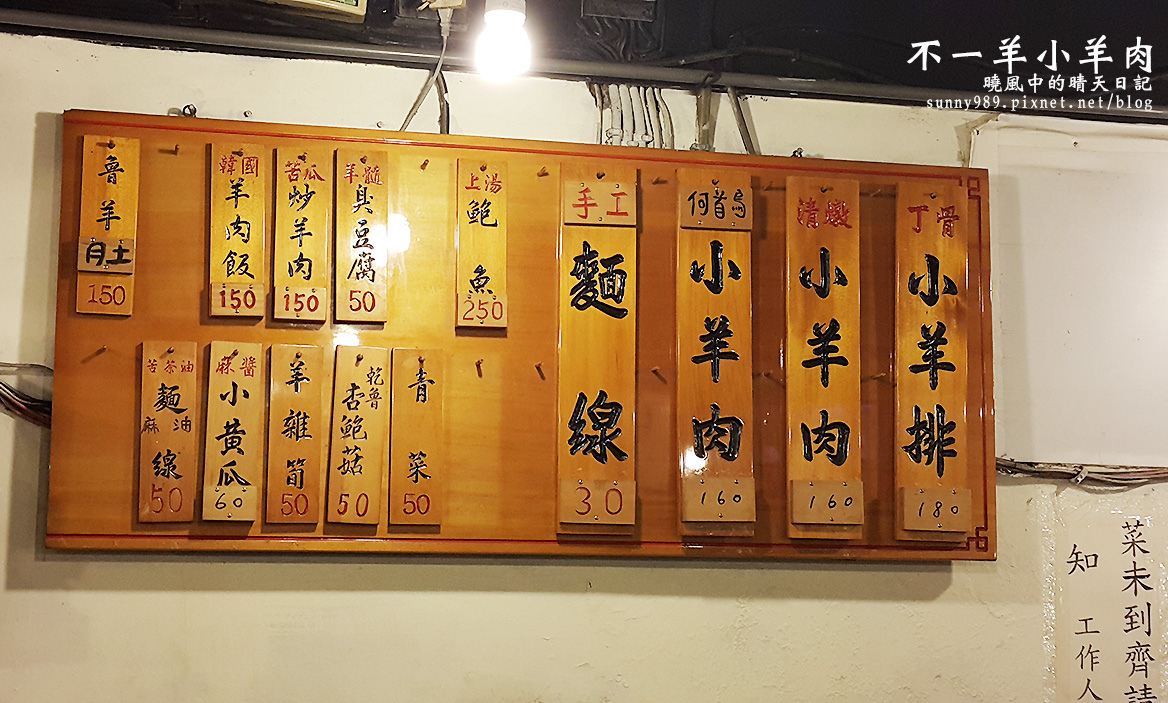 不一羊小羊肉
曉風中的晴天日記
sunny989.pixnet.net/blog
丁骨
小羊排
180
清燉
小羊肉
160
何首烏
小羊肉
160
手工
麵線
30
上湯
鮑魚
250
羊髓
臭豆腐
50
苦瓜
炒羊肉
150
韓國
羊肉飯
150
魯羊肚
150
青菜
50
乾魯
杏鮑菇
50
羊雜筍
50
麻醬
小黃瓜
60
苦茶油
麻油
麵線
50
菜未到齊請
知工作人